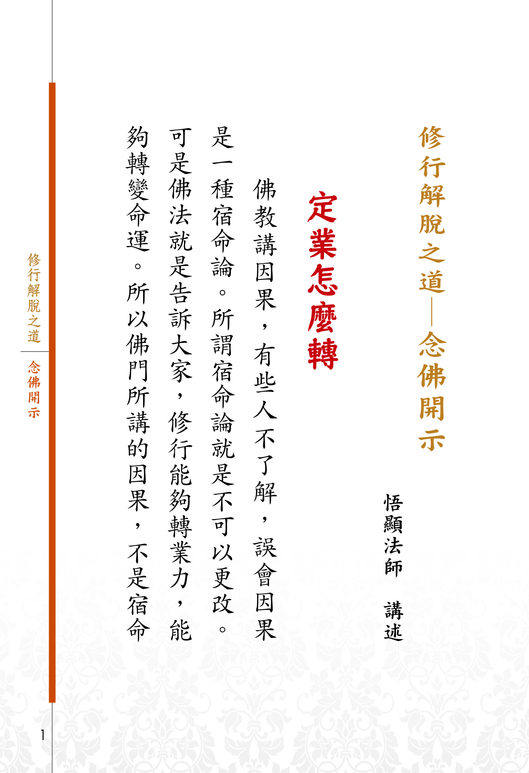 修行解脫之道—念佛開示
悟顯法師　講述
定業怎麼轉
佛教講因果，有些人不了解，誤會因果
是一種宿命論。所謂宿命論就是不可以更改。
可是佛法就是告訴大家，修行能夠轉業力，能
夠轉變命運。所以佛門所講的因果，不是宿命
修行解脫之道
念佛開示
1